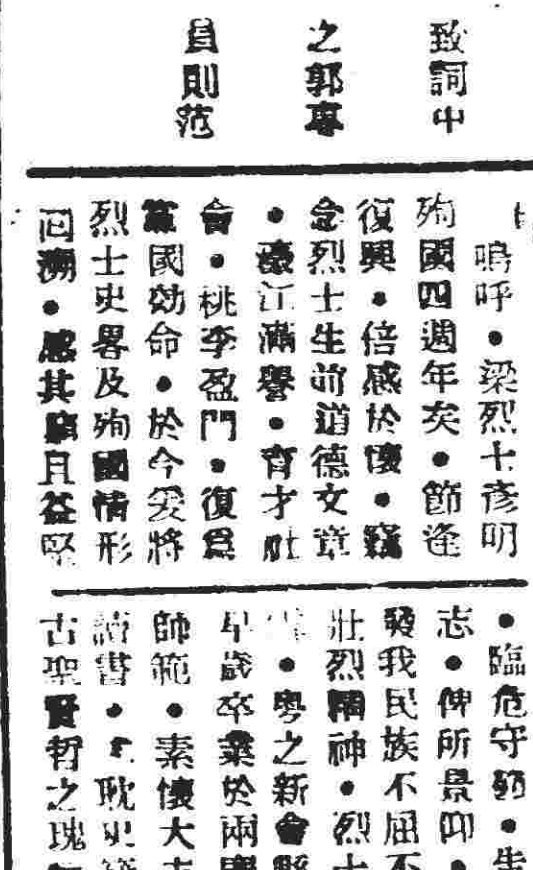 致詞中
之郭專
員則范
嗚呼•梁烈士彥明
殉國四週年矣•節逢
復興•倍感於懷•竊
念烈士生前道德文章
•濠江滿譽•育才社
會•桃李盈門•復爲
黨國効命•於今爰將
烈士史畧及殉國情形
回溯•感其 且益堅
•臨危守 •
志•俾所景仰•
發我民族不屈不
壯烈精神•烈士
•粵之新會縣
早歲卒業於兩
師範•素懷大志
讀書• 耽史
古聖賢哲之瑰